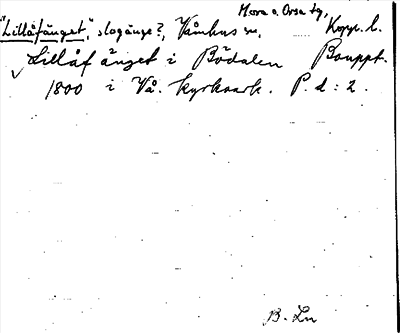 Mora o. Orsa tg,
"Lillåfänget", slogänge?, Våmhus sn, Kopp. l.
Lillåf änget i Bödalen Bouppt.
1800 i Vå. kyrkoark. P. d: 2.
B. Ln